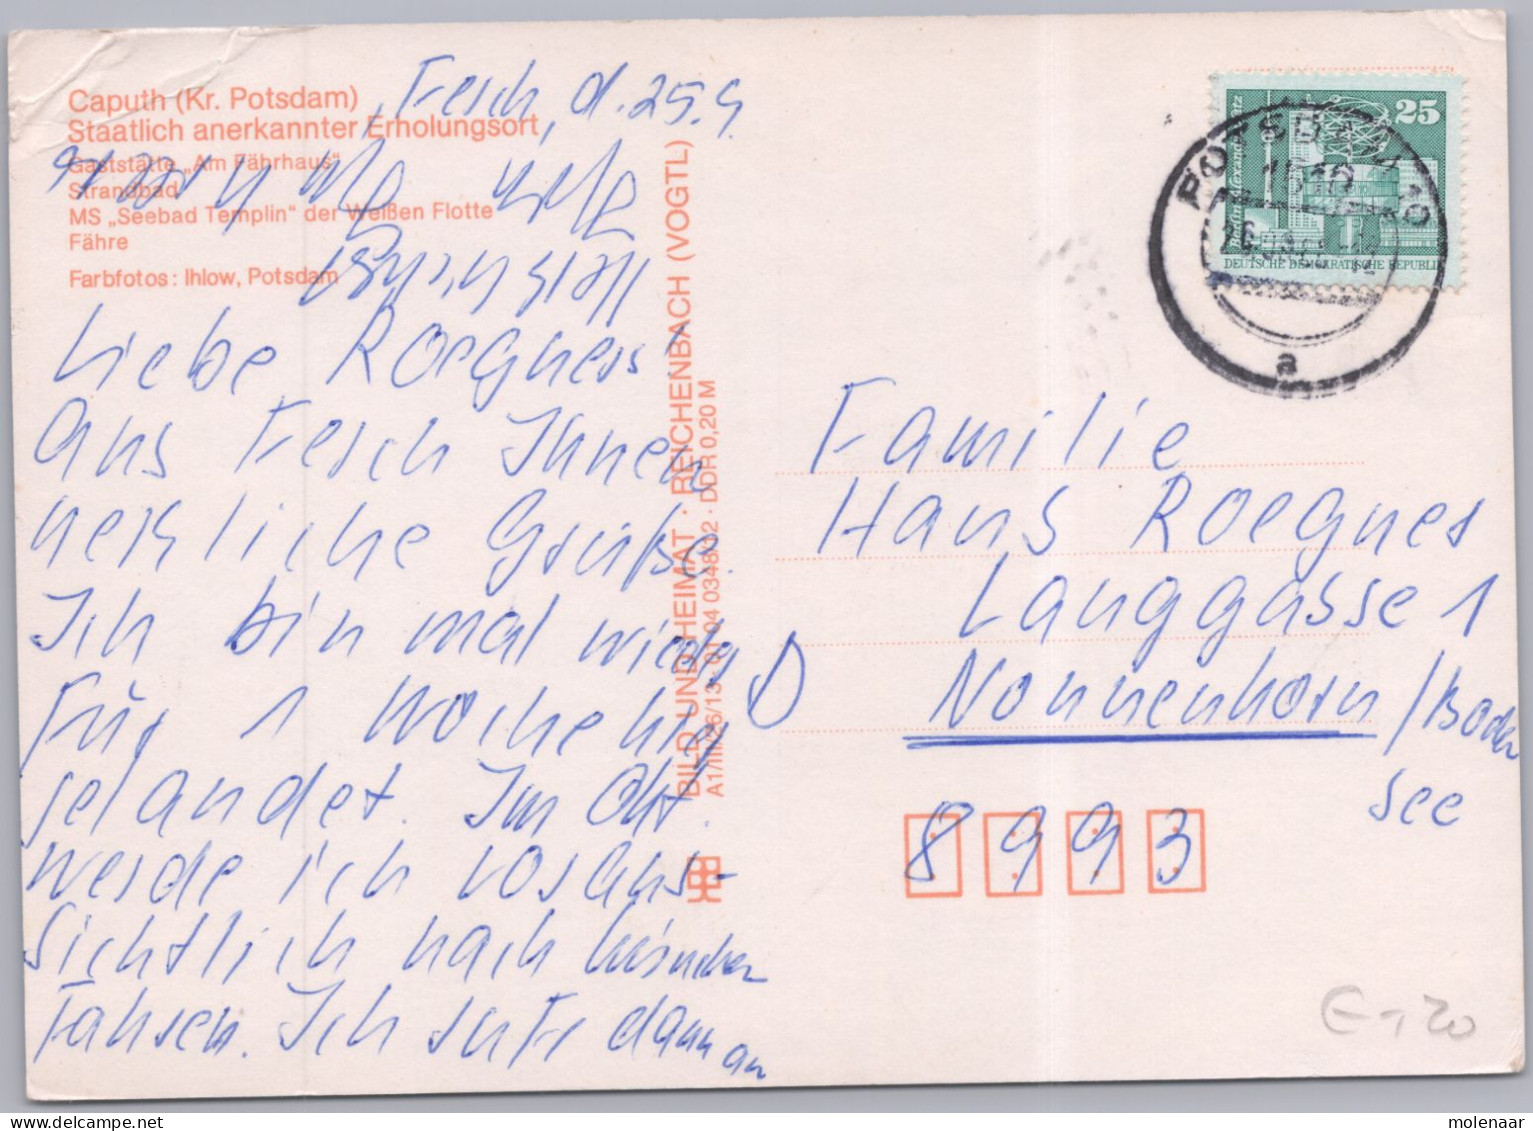 Caputh (Kr. Potsdam)
Staatlich anerkannter Erholungsort
Gaststätte „Am Fährhaus“
Strandbad
MS „Seebad Templin“ der Weißen Flotte
Fähre
Farbfotos: Ihlow, Potsdam
Ferch, d. 25.9.
Liebe Roegners!
Aus Ferch Ihnen
herzliche Grüße.
Ich bin mal wieder
für 1 Woche hier
gelandet. Im Okt.
werde ich voraus-
sichtlich nach München
fahren. Ich rufe dann an
BILD UND HEIMAT · REICHENBACH (VOGTL)
A1/III/26/13 01 04 0348/02 · DDR 0,20 M
25
DEUTSCHE DEMOKRATISCHE REPUBLIK
POTSDAM 10
1510
a
Familie
Hans Roegner
Langgasse 1
D Nonnenhorn / Boden
see
8993
molenaar